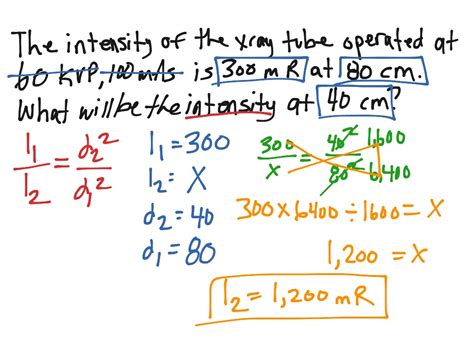 The intensity of the xray tube operated at
60 KVP, 100 mAs is 300 mR at 80 cm.
What will be the intensity at 40 cm?
I1/I2 = d2²/d1²
I1 = 300
I2 = X
d2 = 40
d1 = 80
300/X = 40²/80² 1,600/6,400
300 x 6400 ÷ 1600 = X
1,200 = X
I2 = 1,200 mR